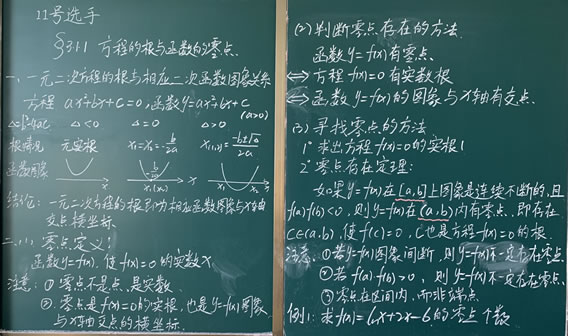 11号选手
§3.1.1 方程的根与函数的零点
一、一元二次方程的根与相应二次函数图象关系
方程 ax²+bx+c=0,函数y=ax²+bx+c
(a>0)
Δ=b²-4ac Δ<0 Δ=0 Δ>0
根情况 无实根 x₁=x₂=-b/2a x₁,₂=(-b±√Δ)/2a
函数图象
结论: 一元二次方程的根即为相应函数图象与x轴
交点横坐标
二、(1) 零点定义:
函数y=f(x), 使f(x)=0的实数x
注意: ① 零点不是点,是实数
②. 零点是f(x)=0的实根,也是y=f(x)图象
与x轴交点的横坐标.
(2) 判断零点存在的方法
函数y=f(x)有零点
⇔ 方程f(x)=0有实数根
⇔ 函数y=f(x)的图象与x轴有交点.
(3) 寻找零点的方法
1° 求出方程f(x)=0的实根!
2° 零点存在定理:
如果y=f(x)在[a,b]上图象是连续不断的,且
f(a)f(b)<0, 则y=f(x)在(a,b)内有零点.即存在
c∈(a,b),使f(c)=0, c也是方程f(x)=0的根.
注意: ①若y=f(x)图象间断,则y=f(x)不一定存在零点
②若f(a)·f(b)>0, 则y=f(x)不一定存在零点.
③零点在区间内,而非端点
例1: 求f(x)=lnx+2x-6的零点个数